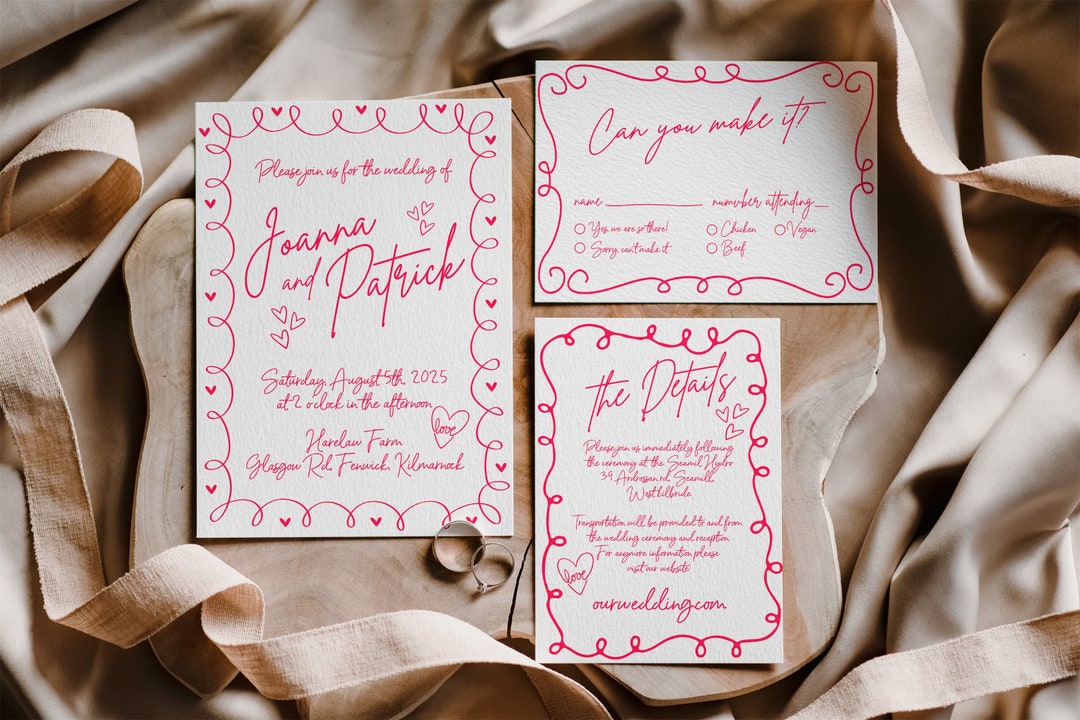 Please join us for the wedding of
Joanna
and Patrick
Saturday, August 5th, 2025
at 2 o'clock in the afternoon
love
Harelaw Farm
Glasgow Rd, Fenwick, Kilmarnock
Can you make it?
name number attending
Yes, we are so there! Chicken Vegan
Sorry, can't make it Beef
the Details
Please join us immediately following
the ceremony at the Seamil Hydro
39 Ardrossan rd, Seamill
West kilbride
Transportation will be provided to and from
the wedding ceremony and reception
For anymore information please
visit our website
love
ourwedding.com